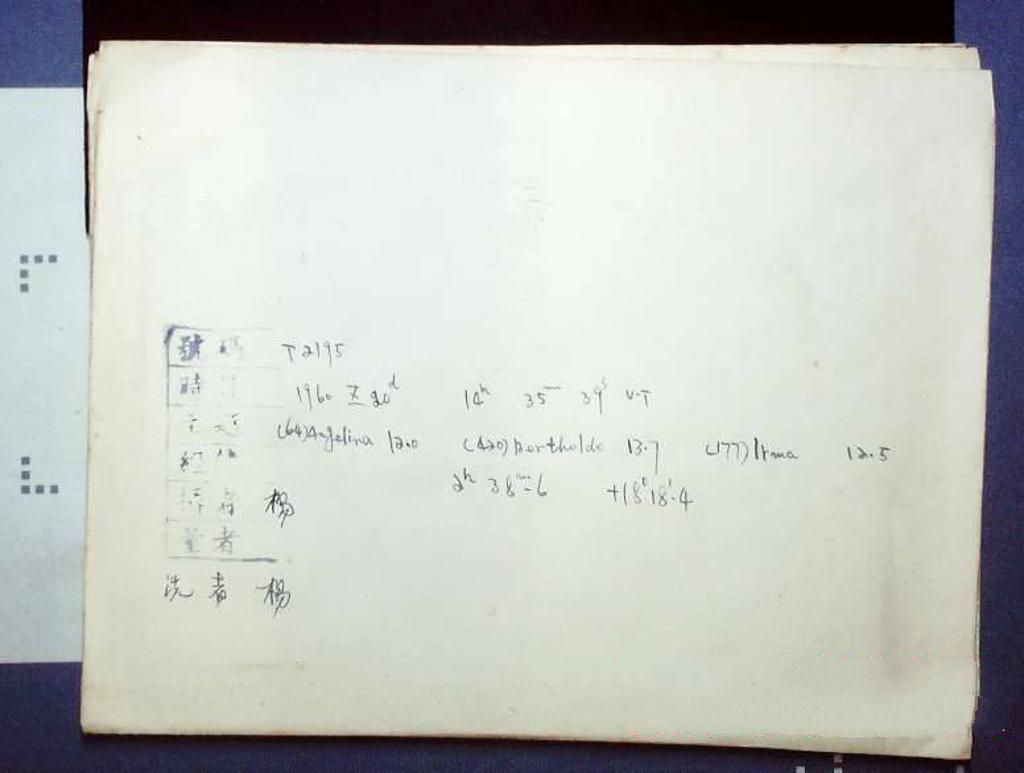 號碼 T2195
時 1960 X 20ᵈ 14ʰ 35ᵐ 39ˢ U.T
(64)Angelina 12.0 (420)Bertholda 13.7 (177)Irma 12.5
經 2ʰ 38ᵐ.6 +18°18'.4
者 楊
量者
洗者 楊